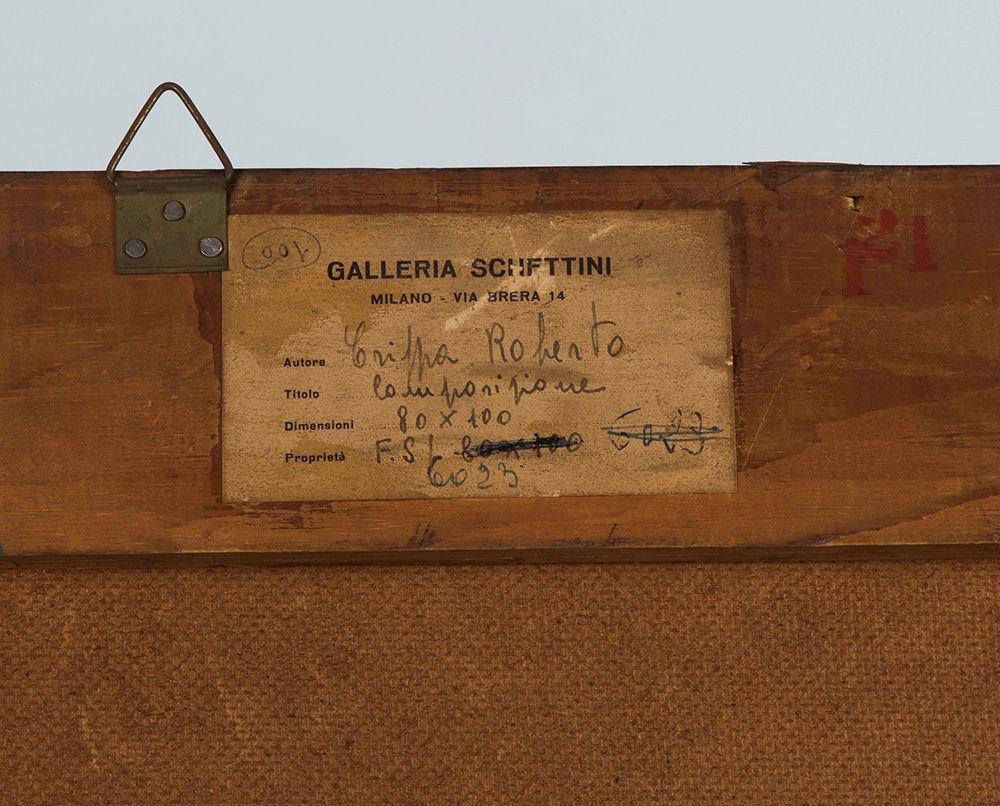 001
GALLERIA SCHETTINI
MILANO - VIA BRERA 14
Autore Crippa Roberto
Titolo Composizione
Dimensioni 80 x 100
Proprietà F.S/ 80x100 6023
6023